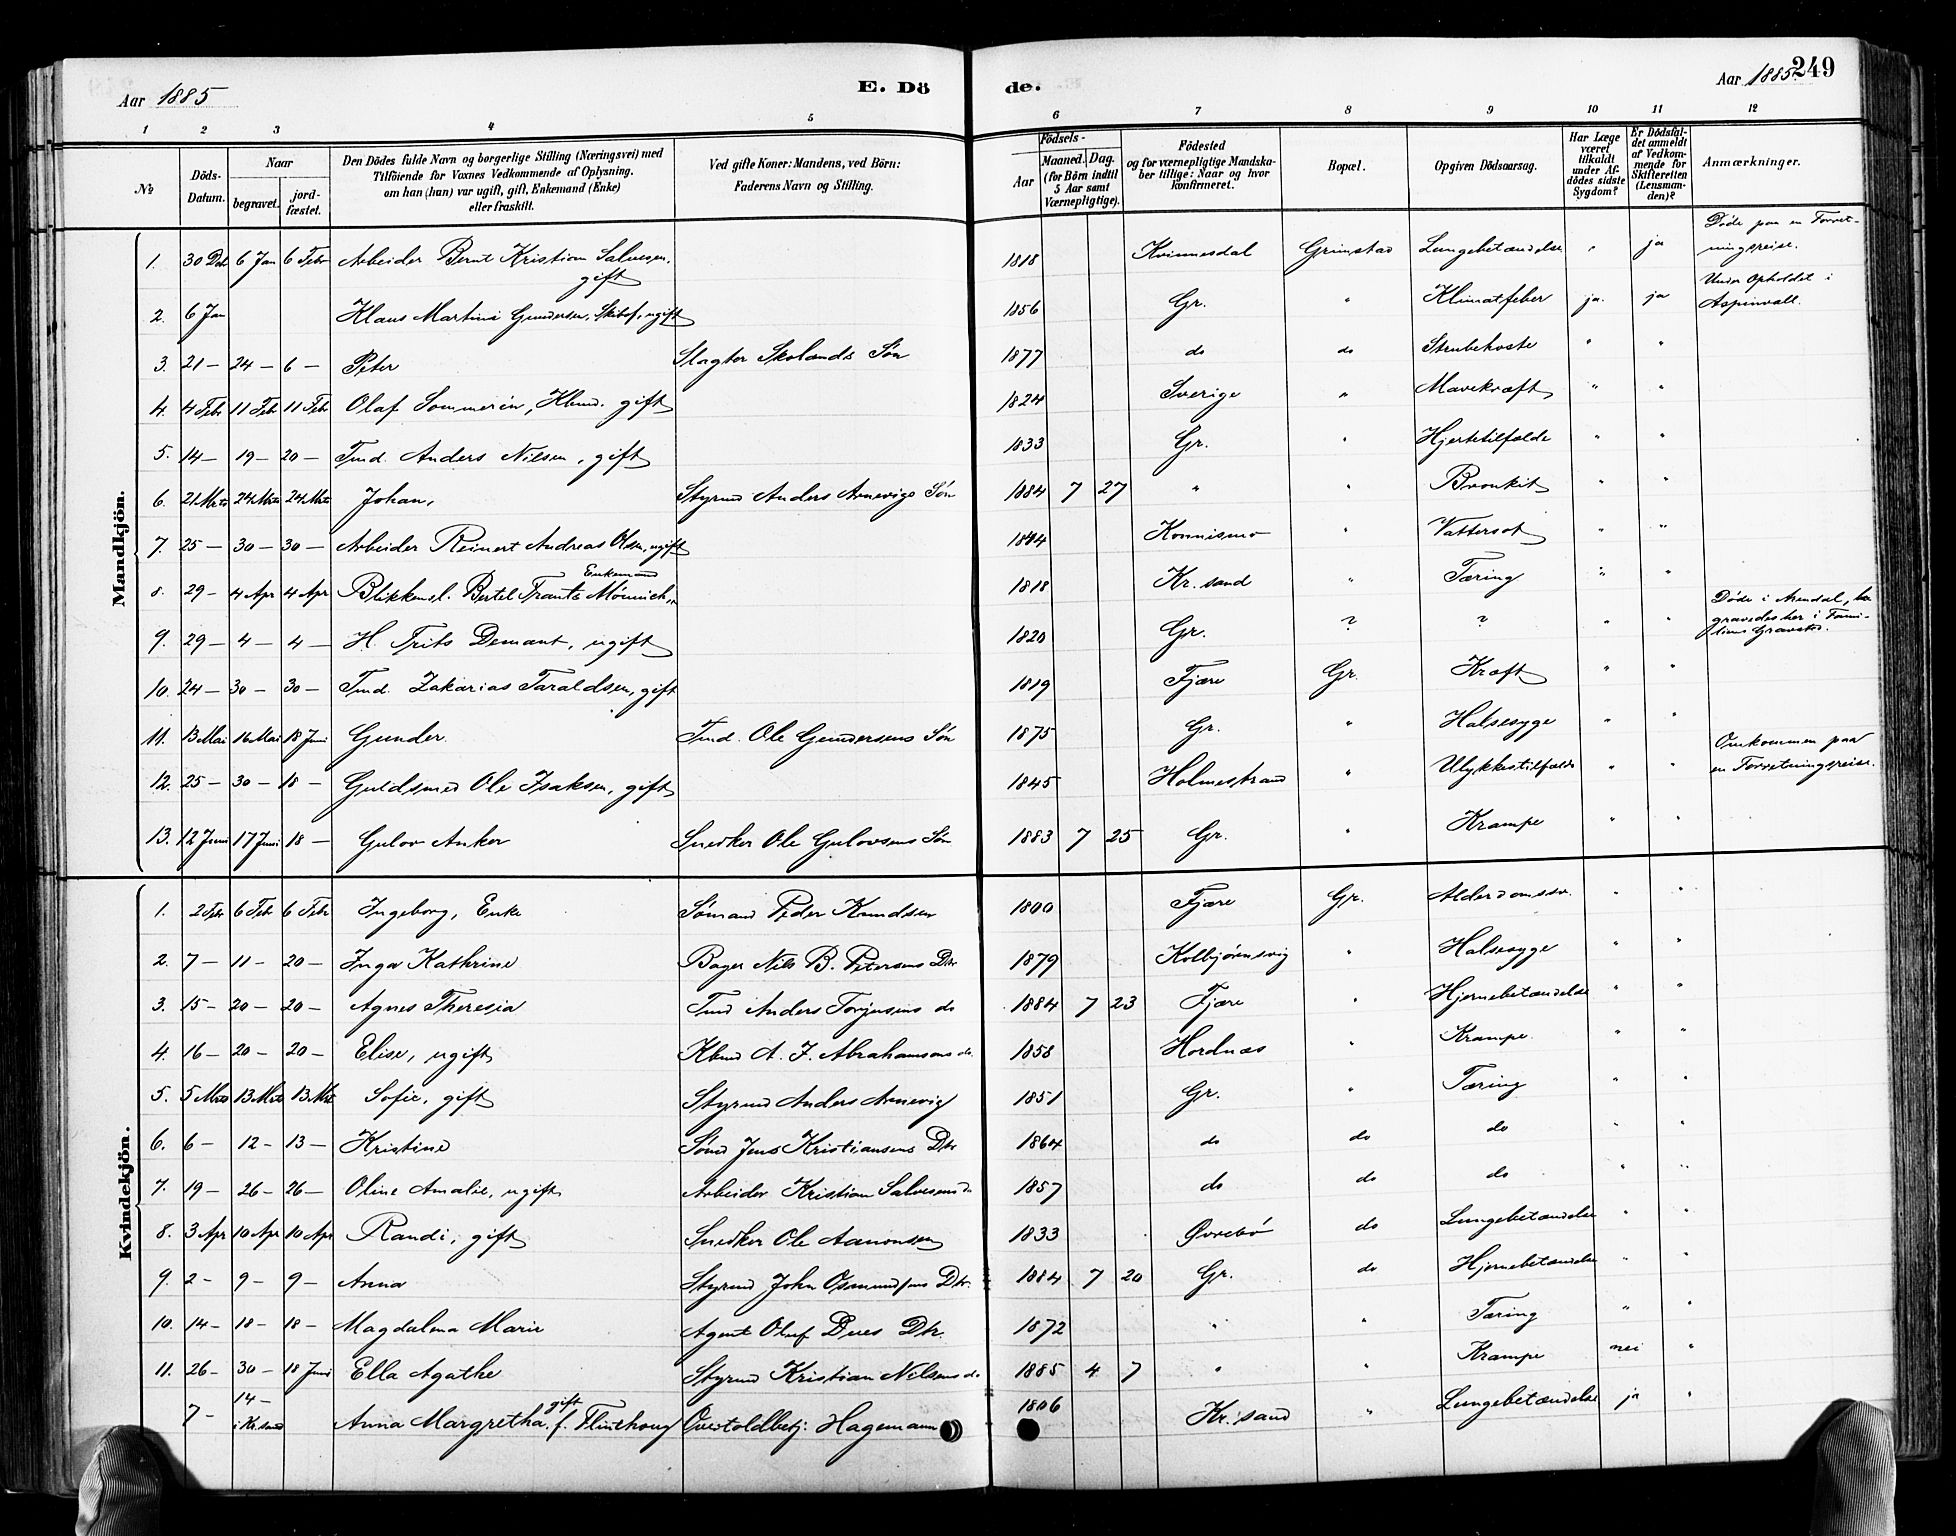 Aar 1885
E. Dö
de.
Aar 1885.
249
1 2 3 4 5 6 7 8 9 10 11 12
№
Döds-Datum.
Naar
begravet.
jord-fæstet.
Den Dödes fulde Navn og borgerlige Stilling (Næringsvei) med
Tilföiende for Voxnes Vedkommende af Oplysning.
om han (hun) var ugift, gift, Enkemand (Enke)
eller fraskilt.
Ved gifte Koner: Mandens, ved Börn:
Faderens Navn og Stilling.
Födsels-
Aar
Maaned. Dag.
(for Börn indtil
5 Aar samt
Værnepligtige).
Födested
og for værnepligtige Mandska-
ber tillige: Naar og hvor
konfirmeret.
Bopæl.
Opgiven Dödsaarsag.
Har Læge
været
tilkaldt
under Af-
dödes sidste
Sygdom?
Er Dödsfal-
det anmeldt
af Vedkom-
mende for
Skifteretten
(Lensman-
den)?
Anmærkninger.
Mandkjön.
1. 30 Dcb 6 Jan 6 Febr Arbeider Bernt Kristian Salvesen, gift 1818 Kvinnesdal Grimstad Lungebetændelse " ja Døde paa en Forret-
ningsreise.
2. 6 Jan Klaus Martini Gundersen, Skibsf., ugift 1856 Gr. " Klimatfeber ja. ja Under Opholdet i
Aspinvall.
3. 21 — 24 — 6 — Peter Slagter Skolands Søn 1877 do do Strubehoste " "
4. 4 Febr 11 Febr 11 Febr Olaf Sommerin, Kbmd. gift 1824 Sverige " Mavekræft " "
5. 14 — 19 — 20 — Tmd. Anders Nilsen, gift 1833 Gr. " Hjertetilfælde " "
6. 21 Mrts 24 Mrts 24 Mrts Johan, Styrmd Anders Arnevigs Søn 1884 7 27 " " Bronkit " "
7. 25 — 30 — 30 — Arbeider Reinert Andreas Olsen, ugift 1844 Konnismo " Vattersot " "
8. 29 — 4 Apr 4 Apr Blikkensl. Bertel Frantz Mönnich, Enkemand 1818 Kr. sand " Tæring " "
9. 29 — 4 — 4 — H. Frits Demant, ugift 1820 Gr. ? ? " " Døde i Arendal, be-
gravedes her i Fami-
liens Gravsted.
10. 24 — 30 — 30 — Tmd. Zakarias Taraldsen, gift 1819 Fjære Gr. Kræft " "
11. 13 Mai 16 Mai 18 Juni Gunder Tmd. Ole Gundersens Søn 1875 Gr. " Halsesyge " "
12. 25 — 30 — 18 — Guldsmed Ole Isaksen, gift 1845 Holmestrand " Ulykkestilfælde " " Omkommen paa
en Forretningsreise.
13. 12 Juni 17 Juni 18 — Gulov Anker Snedker Ole Gulovsens Søn 1883 7 25 Gr. " Krampe " "
Kvindekjön.
1. 2 Febr 6 Febr 6 Febr Ingeborg, Enke Sømand Peder Knudsen 1800 Fjære Gr. Alderdomssv. " "
2. 7 — 11 — 20 — Inga Kathrine Bager Nils B. Petersens Dtr 1879 Kolbjørnsvig " Halsesyge " "
3. 15 — 20 — 20 — Agnes Theresia Tmd Anders Torjusens do 1884 7 23 Fjære " Hjernebetændelse " "
4. 16 — 20 — 20 — Elise, ugift Kbmd A. F. Abrahamsens do 1858 Hordnæs " Krampe. " "
5. 5 Mrts 13 Mrts 13 Mrt Sofie, gift Styrmd Anders Arnevig 1851 Gr. " Tæring " "
6. 6 — 12 — 13 — Kristine Sømd Jens Kristiansens Dtr 1864 do do do " "
7. 19 — 26 — 26 — Oline Amalie, ugift Arbeider Kristian Salvesens do 1857 do do do " "
8. 3 Apr 10 Apr 10 Apr Randi, gift Snedker Ole Aanonsen 1833 Øvrebø do Lungebetændelse " "
9. 2 — 9 — 9 — Anna Styrmd John Osmundsens Dtr. 1884 7 20 Gr. do Hjernebetændelse " "
10. 14 — 18 — 18 — Magdalena Marie Agent Oluf Dues Dtr. 1872 " " Tæring " "
11. 26 — 30 — 18 Juni Ella Agathe Styrmd Kristian Nilsens do 1885 4 7 " " Krampe nei "
7 — 14 — i Kr.sand Anna Margretha gift f. Flinthoug Overtoldbetj: Hagemann 1806 Kr. sand " Lungebetændelse ja "